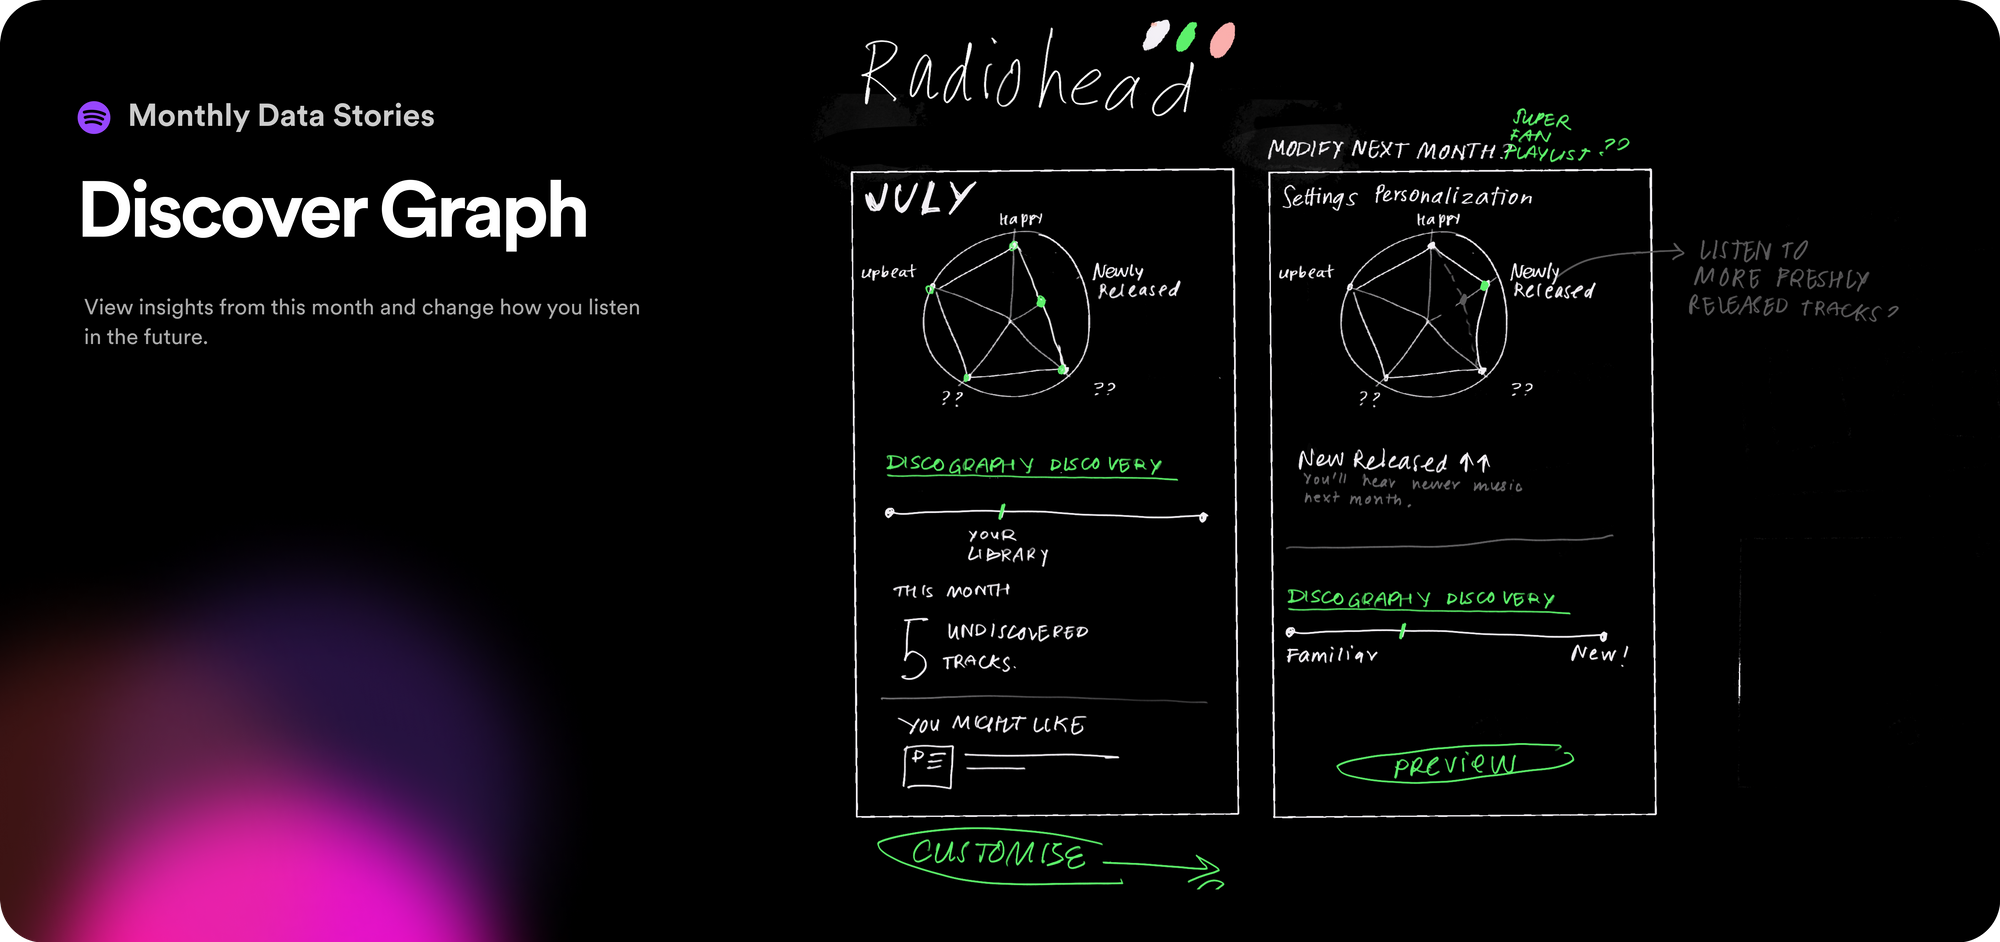 Monthly Data Stories
Discover Graph
View insights from this month and change how you listen
in the future.
Radiohead
JULY
Happy
upbeat
Newly
Released
??
??
DISCOGRAPHY DISCOVERY
YOUR
LIBRARY
THIS MONTH
5 UNDISCOVERED
TRACKS.
YOU MIGHT LIKE
CUSTOMISE
MODIFY NEXT MONTH?
SUPER
FAN
PLAYLIST ??
Settings Personalization
Happy
upbeat
Newly
Released
??
??
LISTEN TO
MORE FRESHLY
RELEASED TRACKS?
New Released ↑↑
You'll hear newer music
next month.
DISCOGRAPHY DISCOVERY
Familiar
New!
PREVIEW